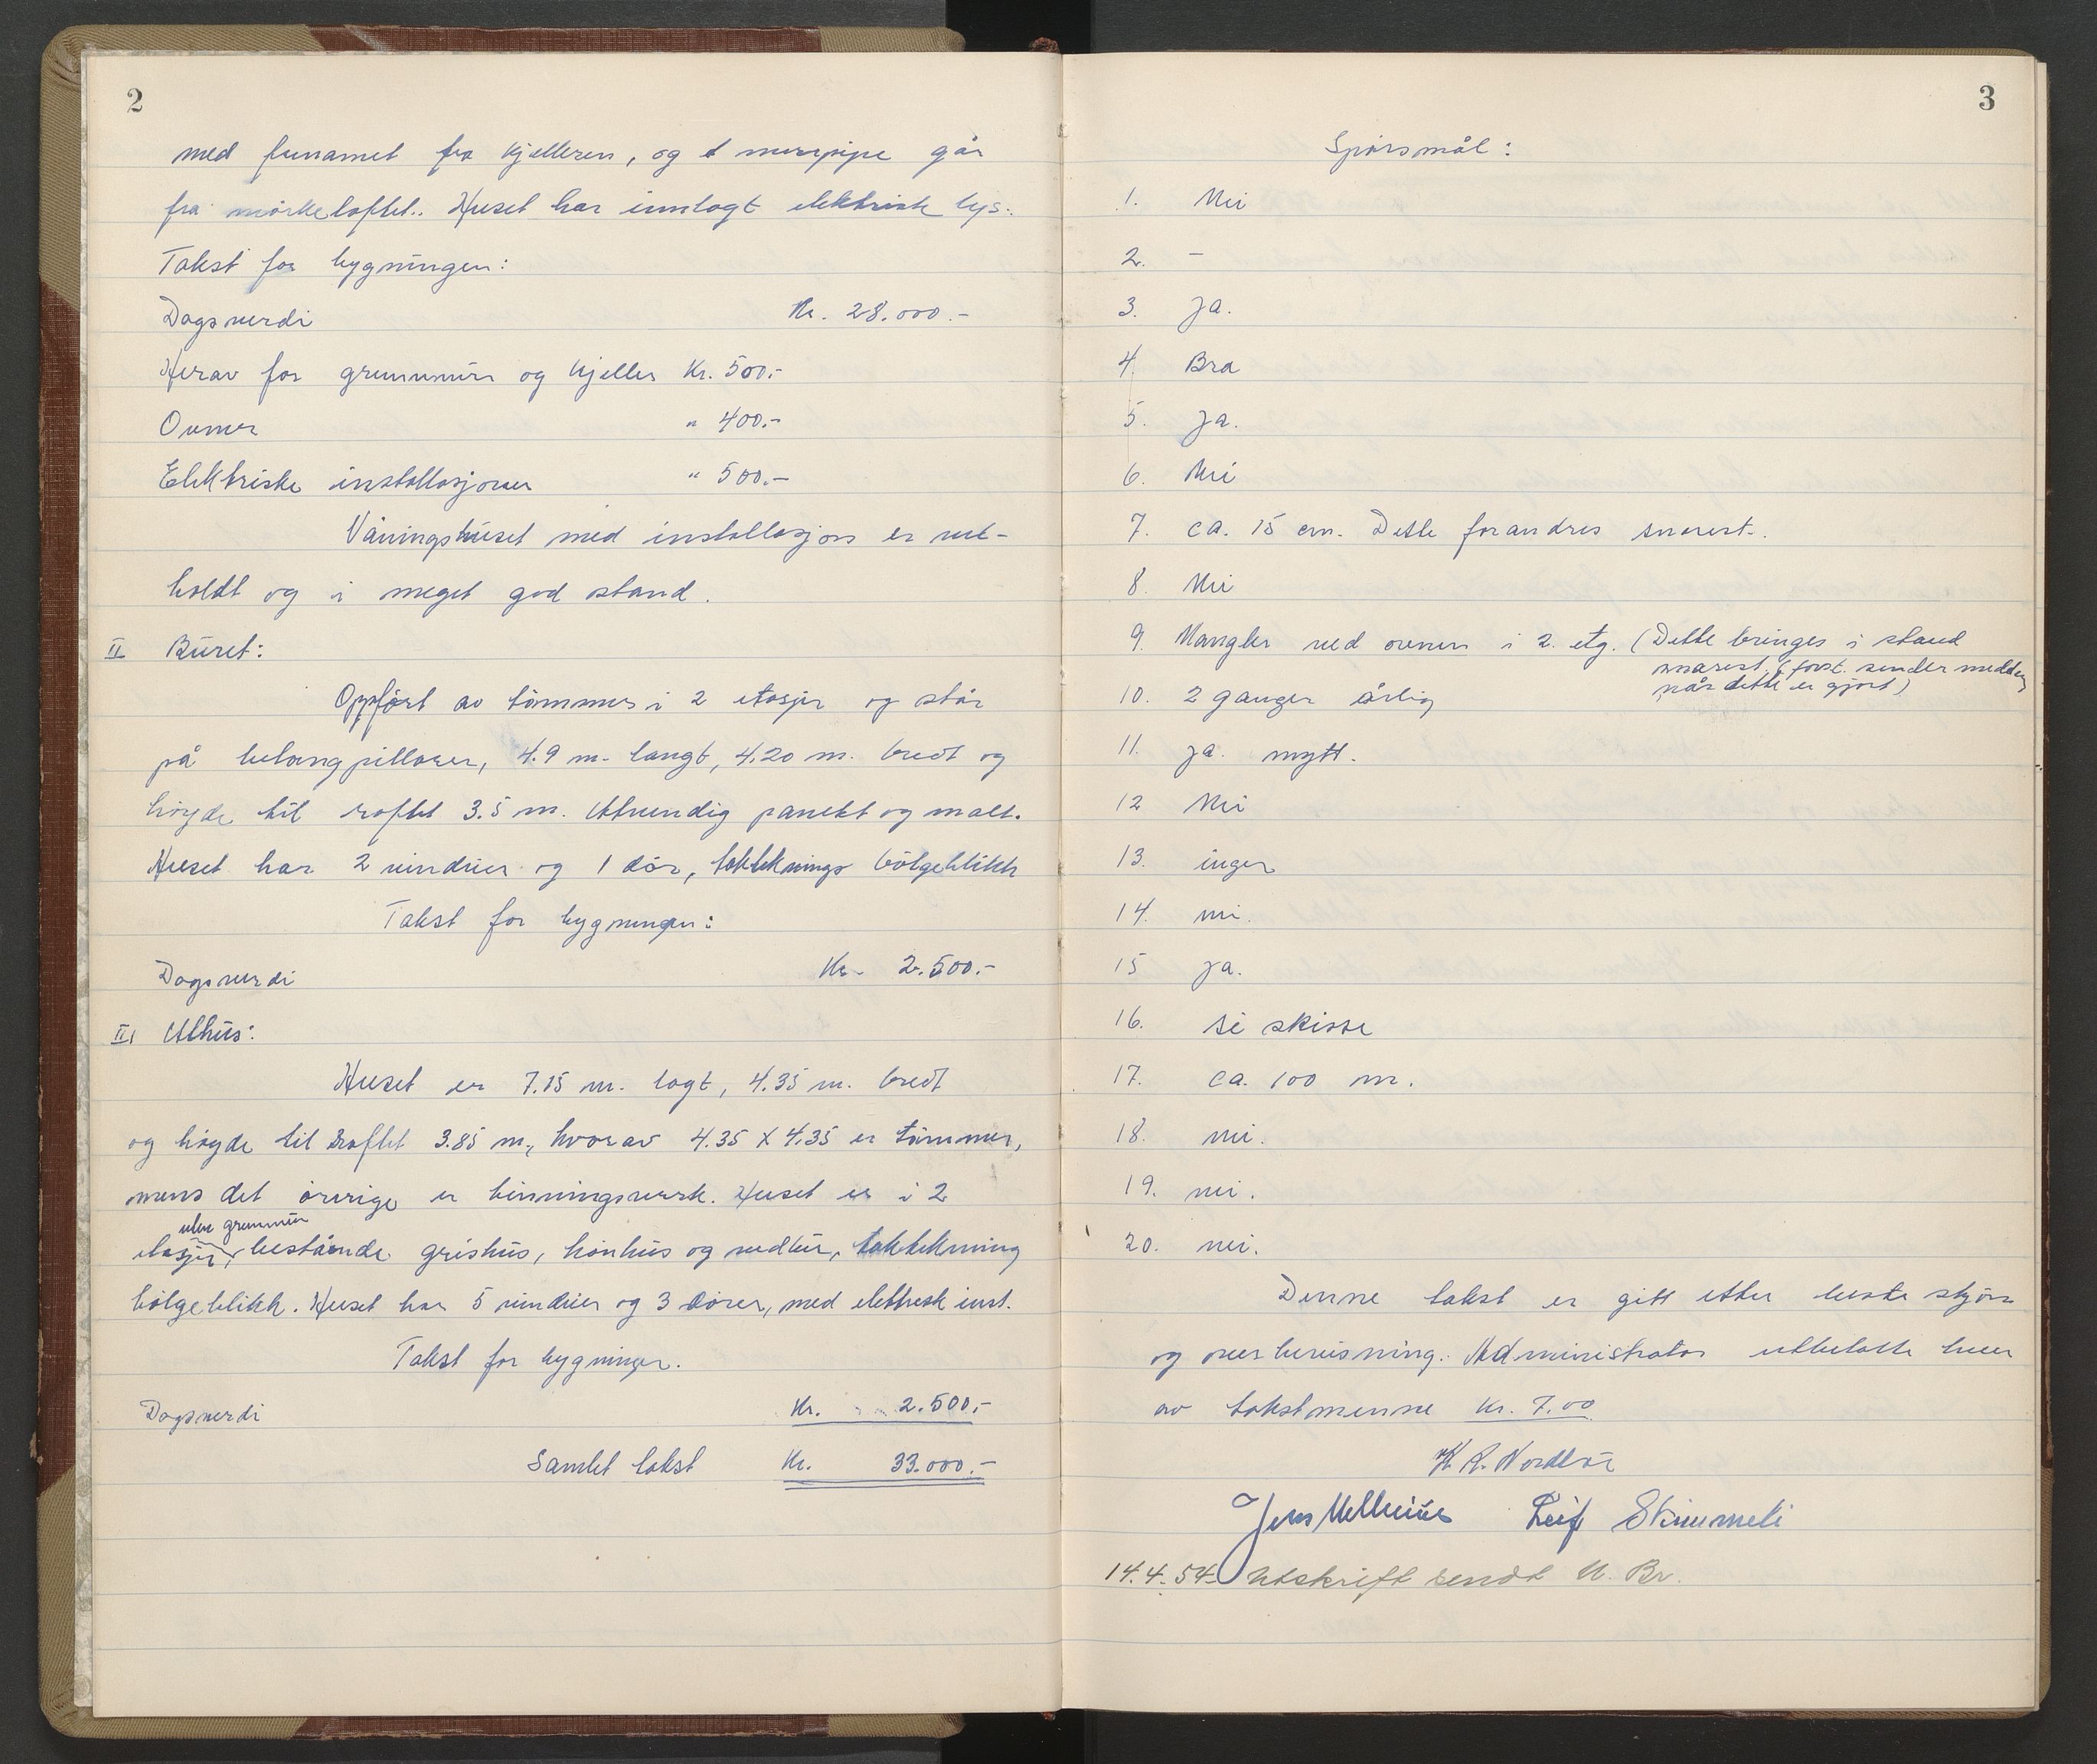 2
med funamet fra kjelleren, og t murpipe går
fra mørkeloftet. Huset har innlagt elektrisk lys.
Takst for bygningen:
Dagsverdi Kr. 28.000.-
Herav for grunnmur og kjeller Kr. 500.-
Ovner " 400.-
Elektriske installasjoner " 500.-
Våningshuset med installasjon er vel-
holdt og i meget god stand.
II Buret:
Oppført av tømmer i 2 etasjer og står
på betongpillarer, 4.9 m. langt, 4.20 m. bredt og
høyde til raftet 3.5 m. Utvendig panelt og malt.
Huset har 2 vinduer og 1 dør, taktekning bølgeblikk
Takst for bygningen:
Dagsverdi Kr. 2.500.-
III Uthus:
Huset er 7.15 m. lagt, 4.35 m. bredt
og høyde til raftet 3.85 m., hvorav 4.35 x 4.35 er tømmer,
mens det øvrige er binningsverk. Huset er i 2
uten grunnmur
etasjer, bestående grishus, hønhus og vedbur, taktekning
bølgeblikk. Huset har 5 vinduer og 3 dører, med elektrisk inst.
Takst for bygningen.
Dagsverdi Kr. 2.500.-
Samlet takst Kr. 33.000.-
3
Spørsmål:
1. Nei
2. -
3. Ja.
4. Bra
5. Ja.
6. Nei
7. ca. 15 cm. Dette forandres snarest.
8. Nei
9. Mangler ved ovnen i 2. etg. (Dette bringes i stand
snarest, (fors. sender medd.
når dette er gjort)
10. 2 ganger årlig
11. ja. nytt.
12 Nei
13. ingen
14. nei.
15 ja.
16. se skisse
17. ca. 100 m.
18. nei.
19. nei.
20. nei.
Denne takst er gitt etter beste skjøn
og overbevisning. Administrator utbetalte hver
av takstmenne kr. 7.00
Jens Leif
14.4.54 Utskrift sendt U. Br.